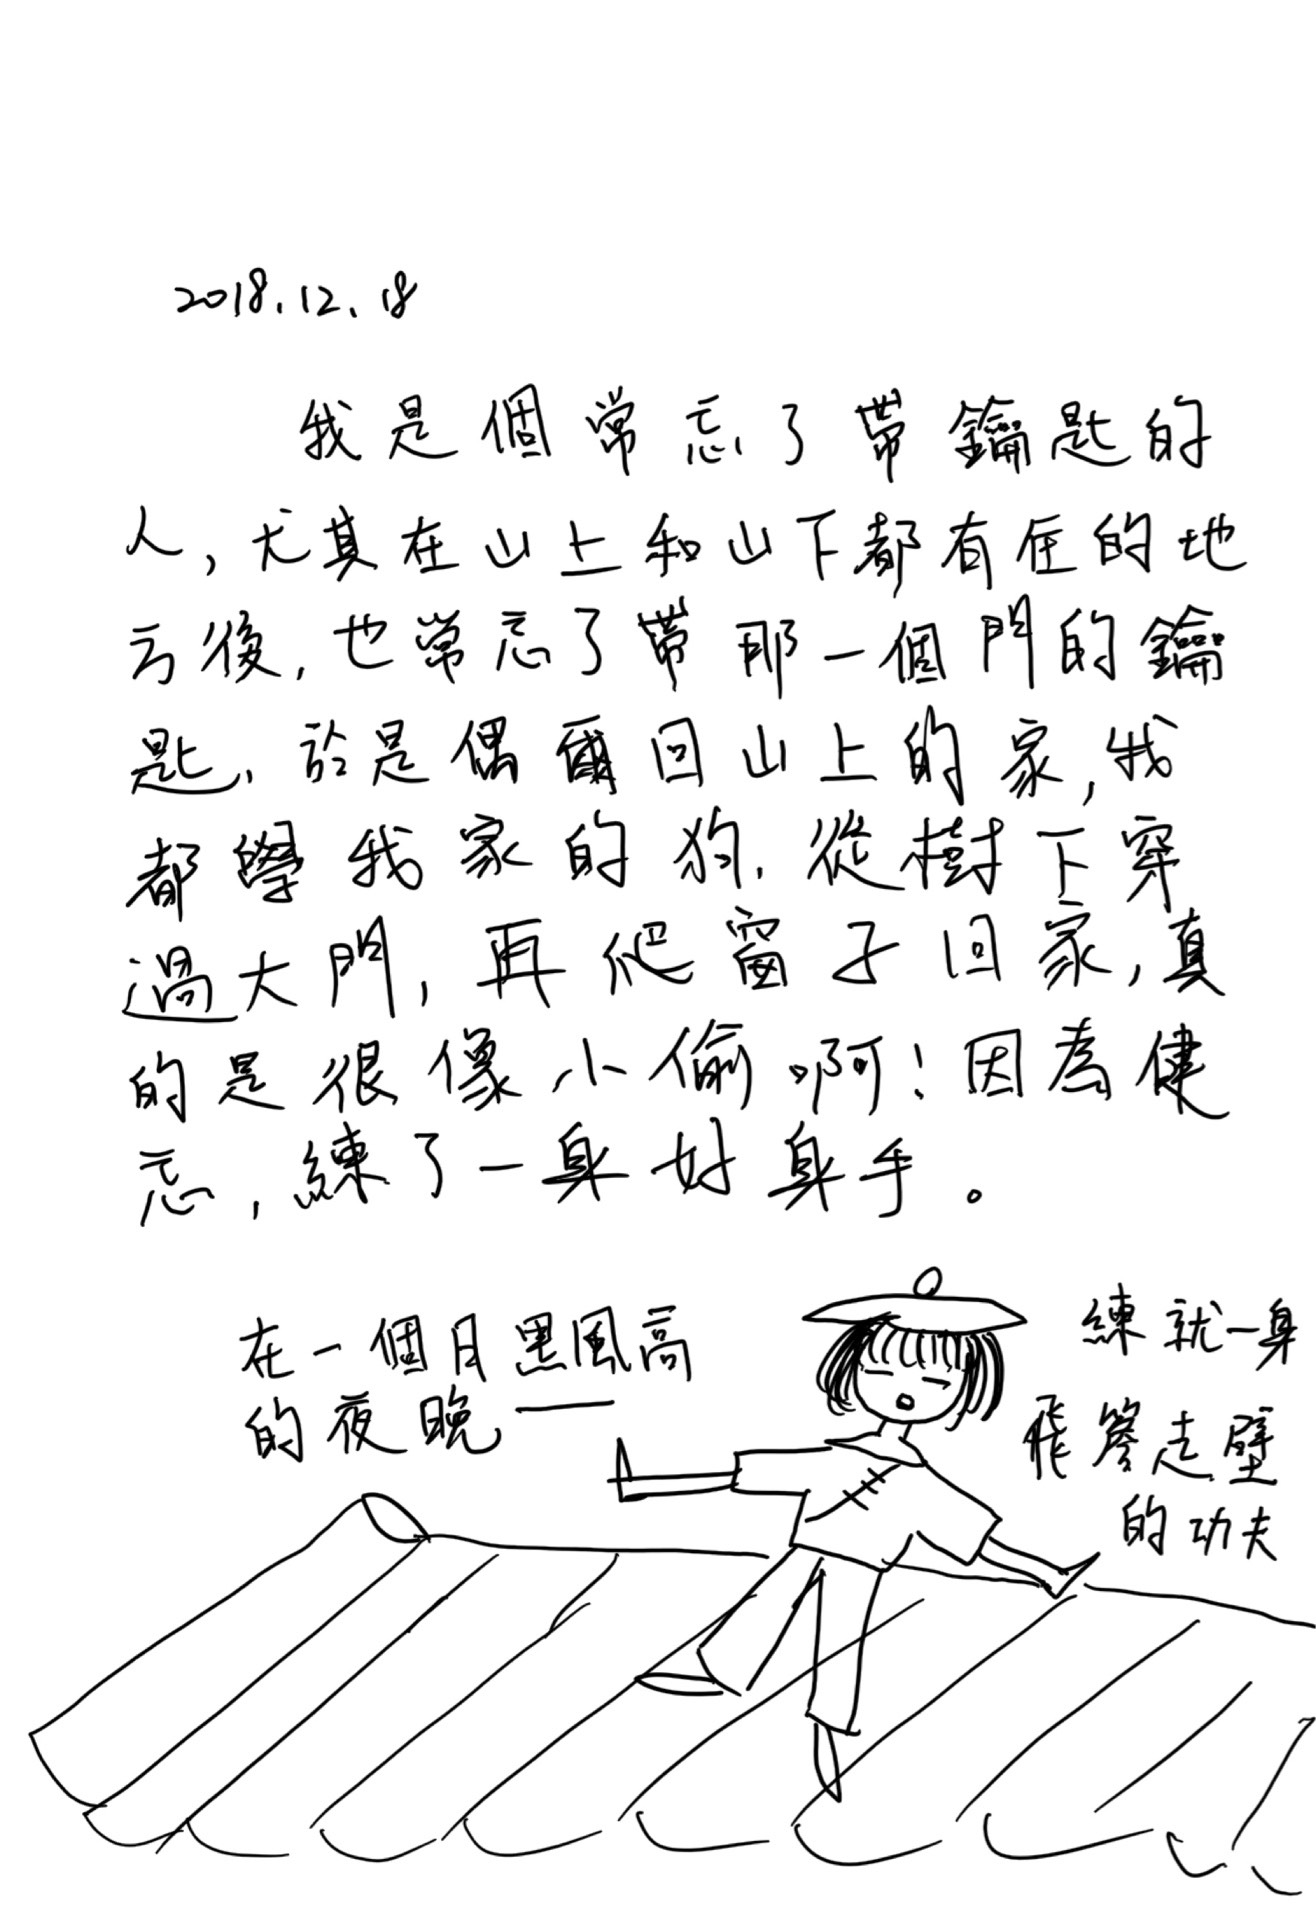 2018.12.18
我是個常忘了帶鑰匙的
人,尤其在山上和山下都有住的地
方後,也常忘了帶那一個門的鑰
匙、於是偶爾回山上的家,我
都學我家的狗.從樹下穿
過大門,再爬窗子回家,真
的是很像小偷啊!因為健
忘,練了一身好身手。
在一個月黑風高
的夜晚——
練就一身
飛簷走壁
的功夫